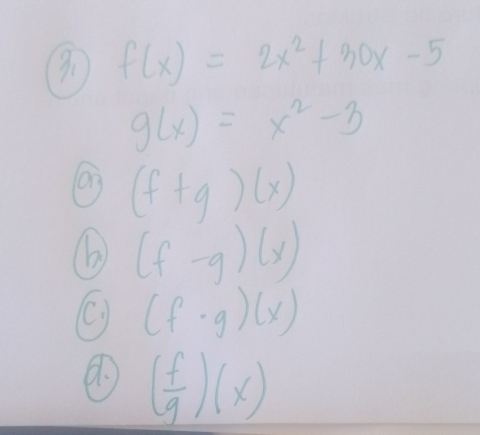 3. f(x) = 2x² + 30x - 5
g(x) = x² - 3
a. (f + g)(x)
b. (f - g)(x)
c. (f · g)(x)
d. (f/g)(x)